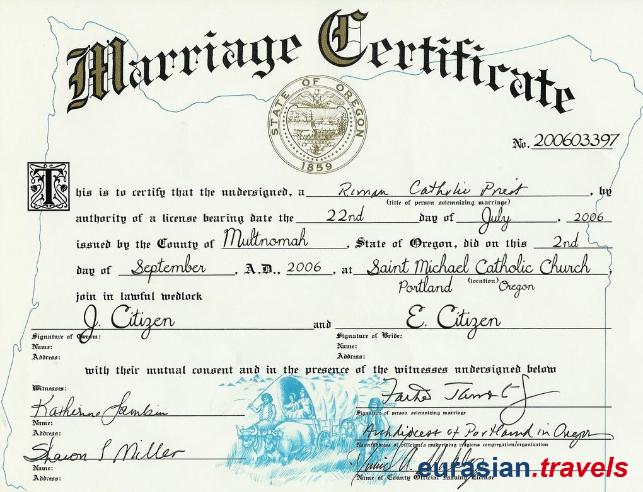 Marriage Certificate
STATE OF OREGON
1859
No. 200603397
This is to certify that the undersigned, a Roman Catholic Priest, by
(title of person solemnizing marriage)
authority of a license bearing date the 22nd day of July, 2006
issued by the County of Multnomah, State of Oregon, did on this 2nd
day of September, A.D., 2006, at Saint Michael Catholic Church
Portland (location) Oregon
join in lawful wedlock
J. Citizen and E. Citizen
Signature of Groom: Signature of Bride:
Name: Name:
Address: Address:
with their mutual consent and in the presence of the witnesses undersigned below
Witnesses:
Katherine
Signature of person solemnizing marriage
Name:
Address:
Archdiocese of Portland in Oregon
Sharon L Miller
Name:
Address:
Name of County Official Issuing License
eurasian.travels